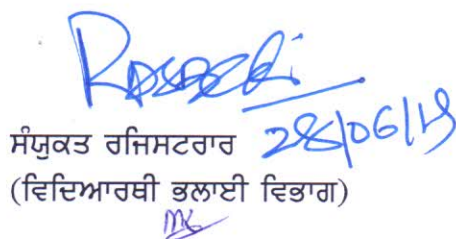 ਸੰਯੁਕਤ ਰਜਿਸਟਰਾਰ 28/06/19
(ਵਿਦਿਆਰਥੀ ਭਲਾਈ ਵਿਭਾਗ)